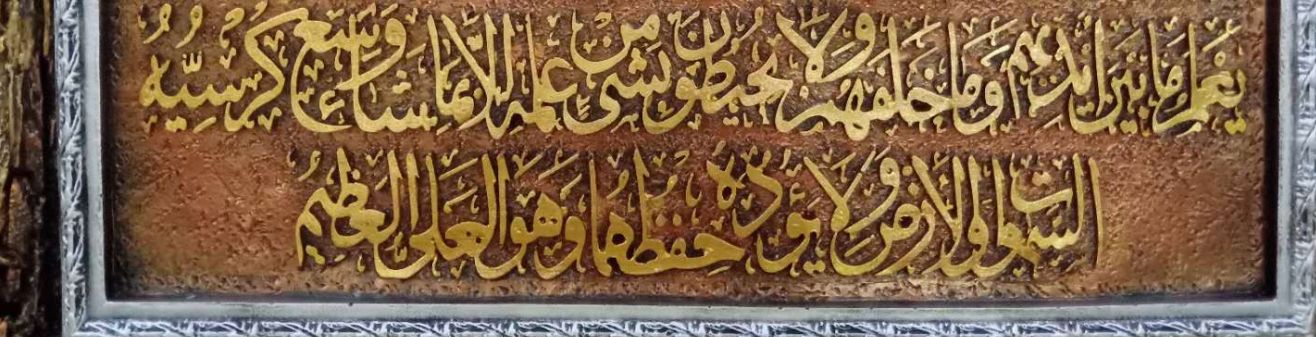 يَعْلَمُ مَا بَيْنَ أَيْدِيهِمْ وَمَا خَلْفَهُمْ وَلَا يُحِيطُونَ بِشَيْءٍ مِنْ عِلْمِهِ إِلَّا بِمَا شَاءَ وَسِعَ كُرْسِيُّهُ
السَّمَوَاتِ وَالْأَرْضَ وَلَا يَؤُودُهُ حِفْظُهُمَا وَهُوَ الْعَلِيُّ الْعَظِيمُ